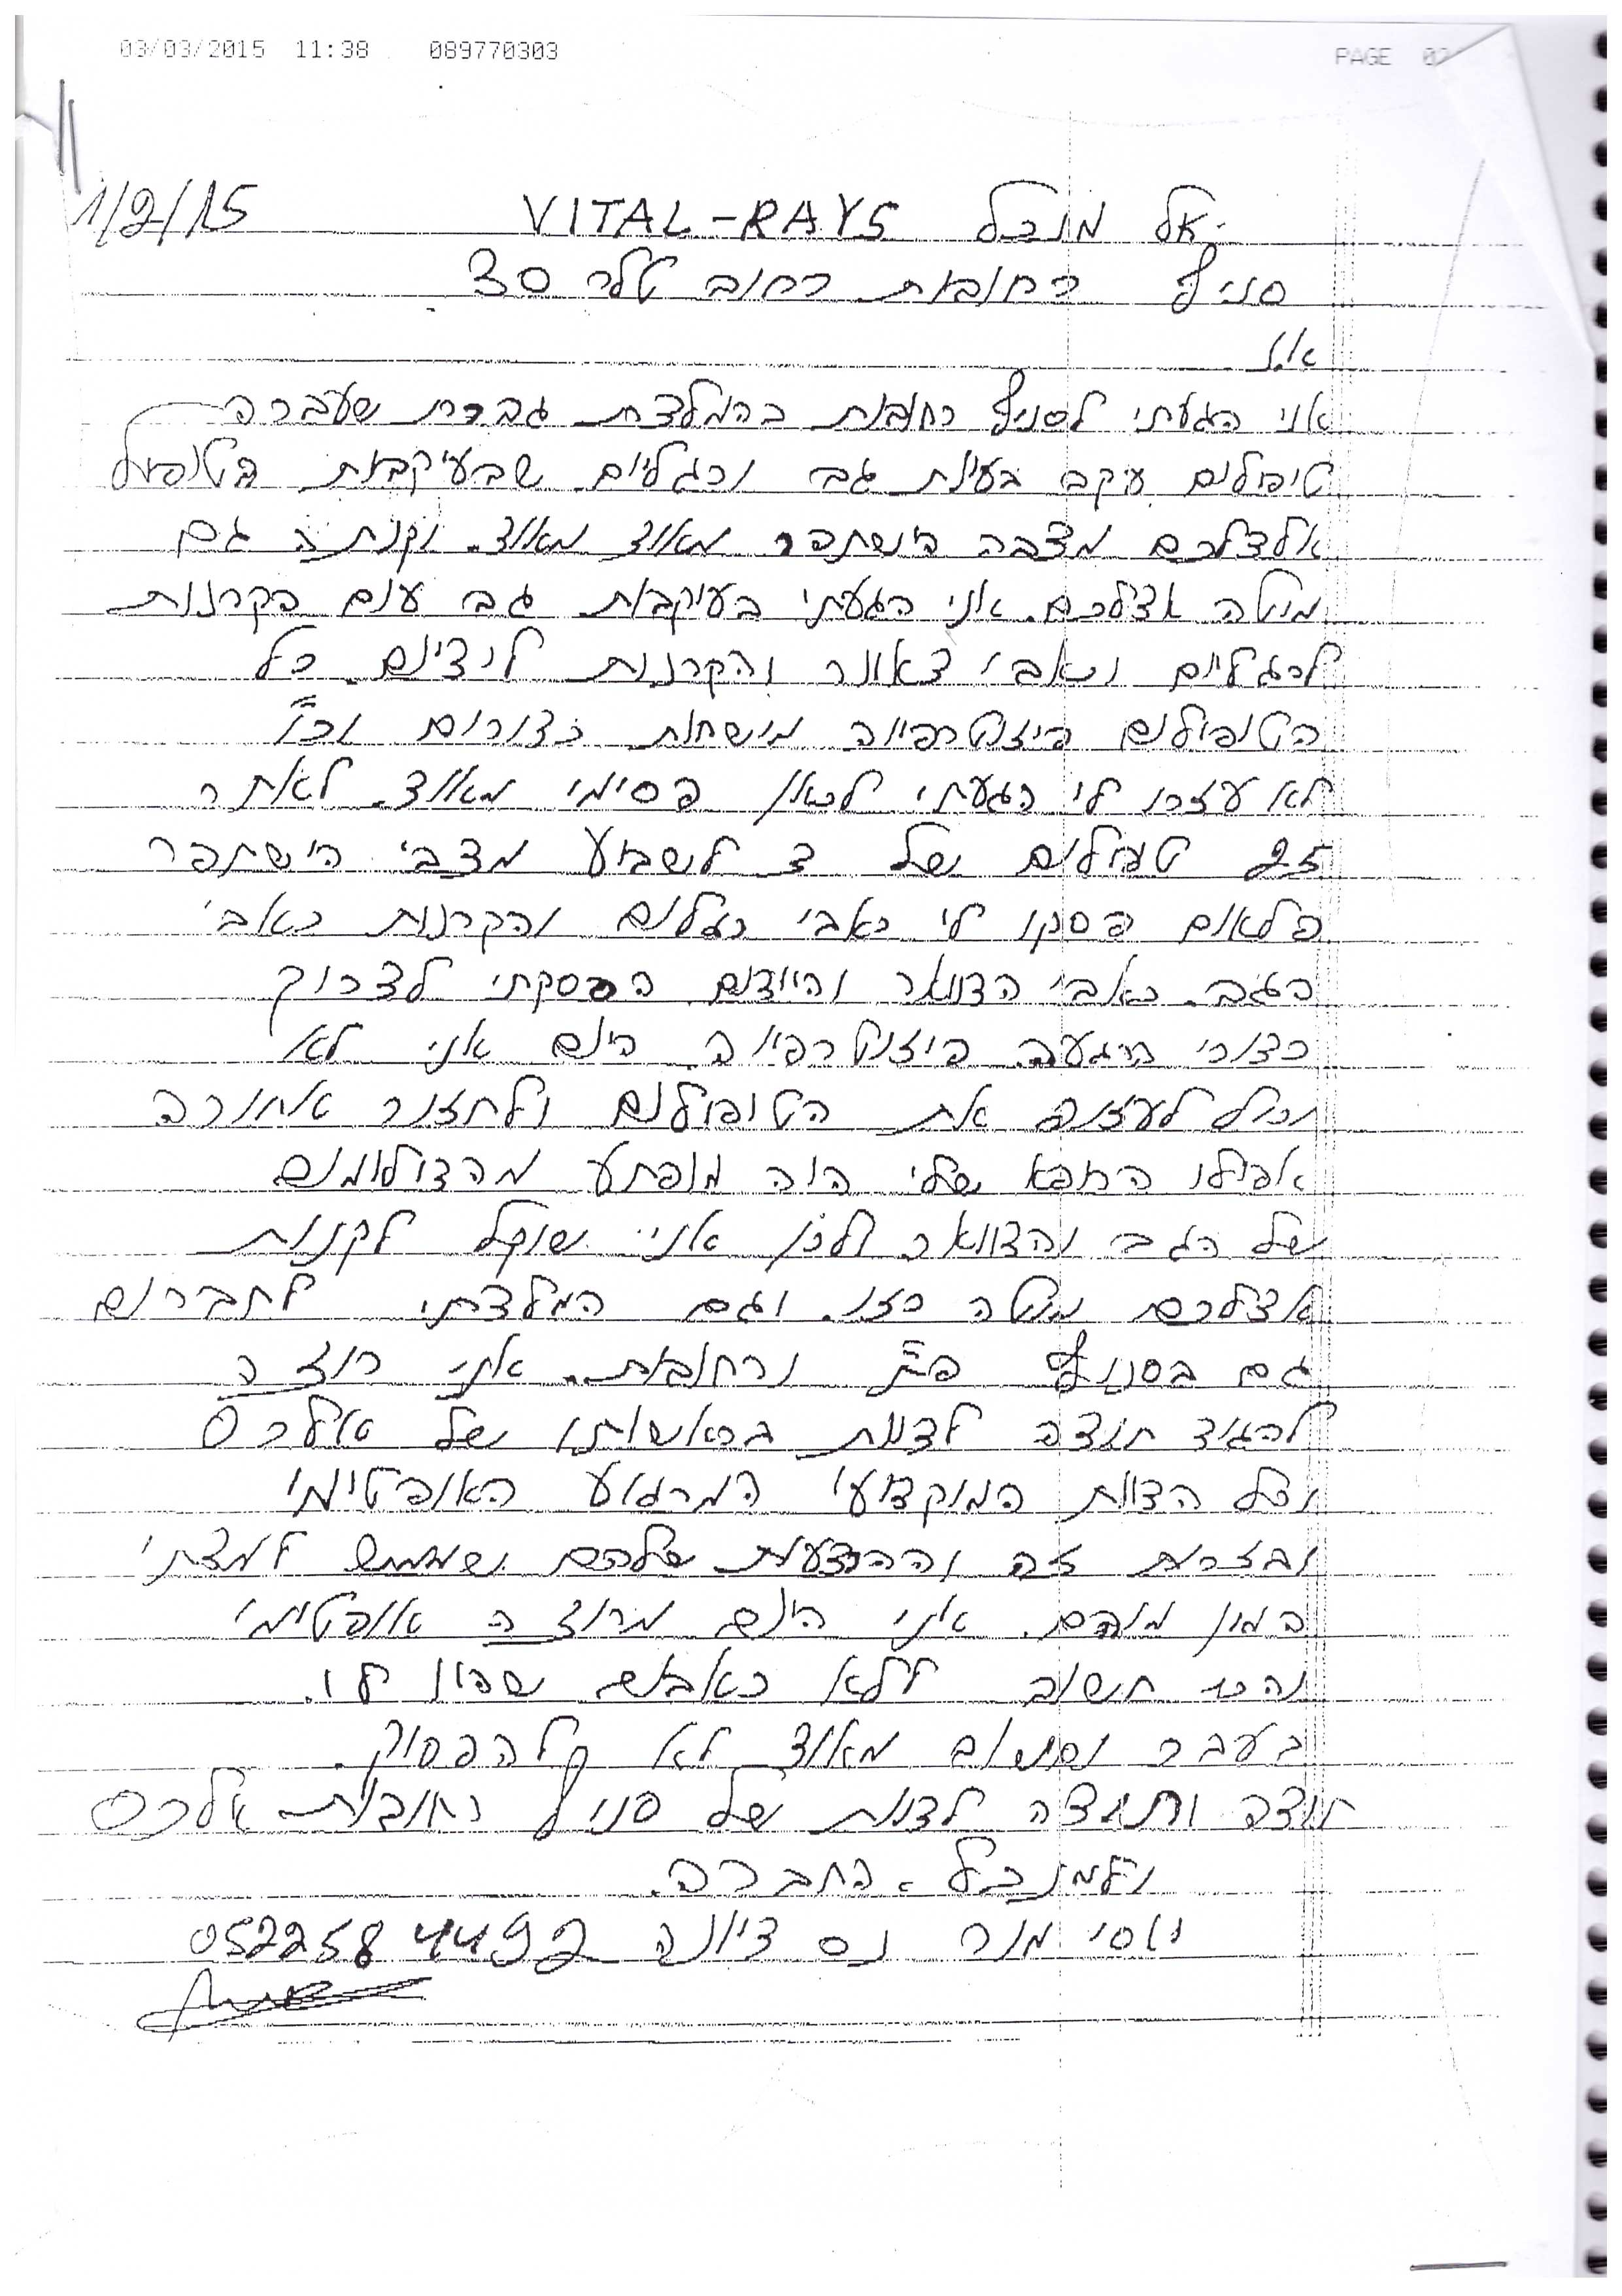 03/03/2015 11:38 089770303 PAGE 02
1/2/15
אל מנכל VITAL-RAYS
סניף רחובות רחוב טלר 30
א.נ
אני הגעתי לסניף רחובות בהמלצת גברת שעברה
טיפולים עקב בעית גב ורגליים שבעיקבות הטיפול
אצלכם מצבה הישתפר מאוד מאוד. וקנתה גם
מיטה אצלכם. אני הגעתי בעיקבות גב עים הקרנות
לרגליים וכאבי צאוור והקרנות לידיים. כל
הטיפולים פיזוטרפיה מישחות כדורים וכו'
לא עזרו לי הגעתי לכאן פסימי מאוד. לאחר
25 טיפולים של 3 לשבוע מצבי הישתפר
פלאים פסקו לי כאבי רגלים והקרנות כאבי
הגב. כאבי הצוואר והיידים הפסקתי לצרוך
כדורי הרגעה פיזוטרפיה. היום אני לא
יכול לעזוב את הטיפולים ולחזור אחורה
אפילו הרופא שלי היה מופתע מהצילומים
של הגב והצוואר ולכן אני שוקל לקנות
אצלכם מיטה כזו. וגם המלצתי לחברים
גם בסניף פ"ת ורחובות. אני רוצה
להגיד תודה לצוות בראשותו של אלכס
וכל הצוות המוקצועי המרגוע האופטימי
ובזכות זה וההרצאות שלהם שממש למדתי
המון מהם. אני היום מרוצה אופטימי
והכי חשוב ללא כאבים
בעבר מאוד לא קל להפסיק.
תודה ותודה לצוות של סניף רחובות אלכס
ולמנכל החברה.
יוסי מור נס ציונה 0522584492